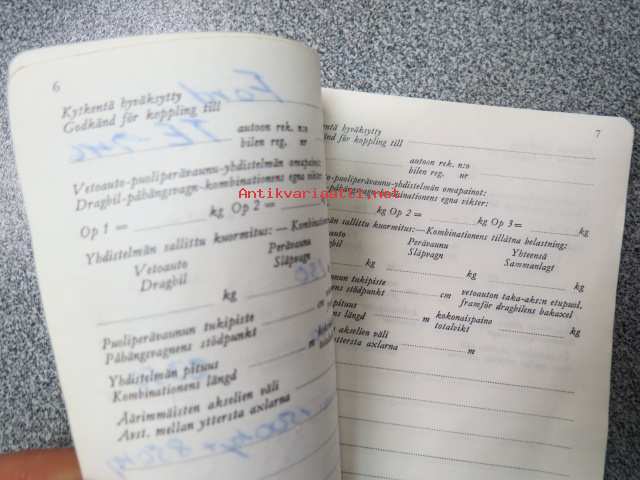 6
Kytkentä hyväksytty
Godkänd för koppling till
Ford
autoon rek. n:o
bilen reg. nr
Vetoauto-puoliperävaunu-yhdistelmän omapainot:
Dragbil-påhängsvagn-kombinationens egna vikter:
Op 1 = kg Op 2 =
Yhdistelmän sallittu kuormitus: — Kombination
Vetoauto Perävaunu
Dragbil Släpvagn
kg
Puoliperävaunun tukipiste
Påhängsvagnens stödpunkt cm
Yhdistelmän pituus
Kombinationens längd m
Äärimmäisten akselien väli
Avst. mellan yttersta axlarna
7
entä hyväksytty
nd för koppling till
autoon rek. n:o
bilen reg. nr
to-puoliperävaunu-yhdistelmän omapainot:
-påhängsvagn-kombinationens egna vikter:
kg Op 2 = kg Op 3= kg
sallittu kuormitus:—Kombinationens tillåtna belastning:
Perävaunu Yhteensä
Släpvagn Sammanlagt
kg kg kg
unun tukipiste cm vetoauton taka-aks:n etupuol.
ens stödpunkt framför dragbilens bakaxel
pituus m kokonaispaino kg
ns längd totalvikt
n akselien väli m
yttersta axlarna
Antikvariaatti.net